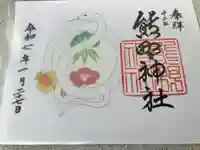 奉拝
熊野神社
令和七年一月二十七日